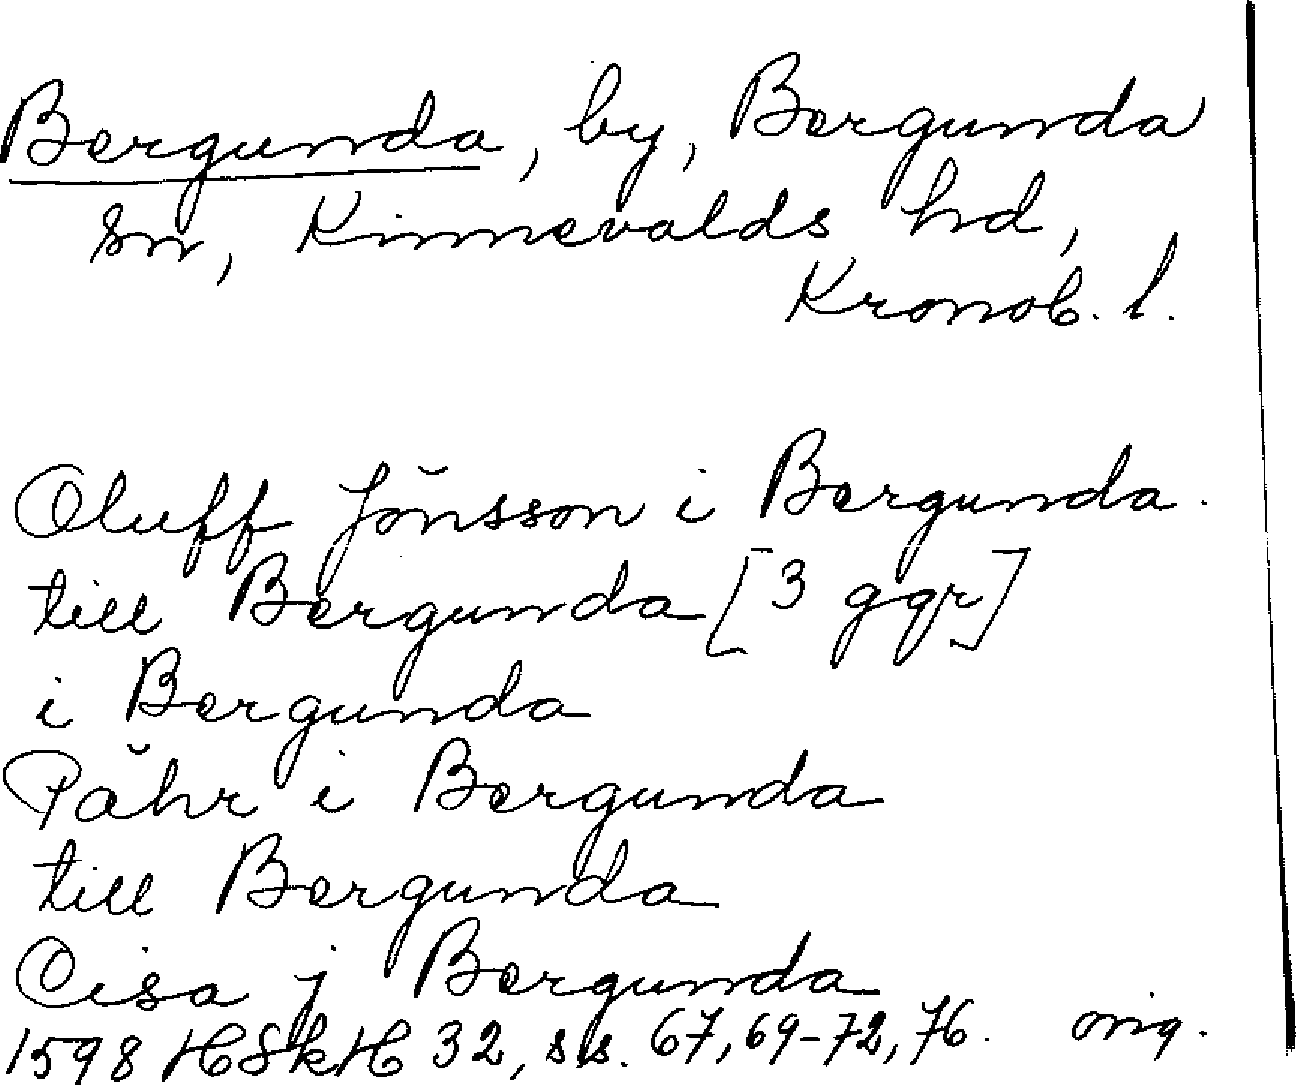 Bergunda, by, Bergunda
sn, Kinnevalds hd,
Kronob. l.
Oluff Jŏnsson i Bergunda.
till Bergunda [3 ggr]
i Bergunda
Påhr i Bergunda
till Bergunda
Oisa j Bergunda
1598 HSkH 32, ss. 67, 69-72, 76. orig.